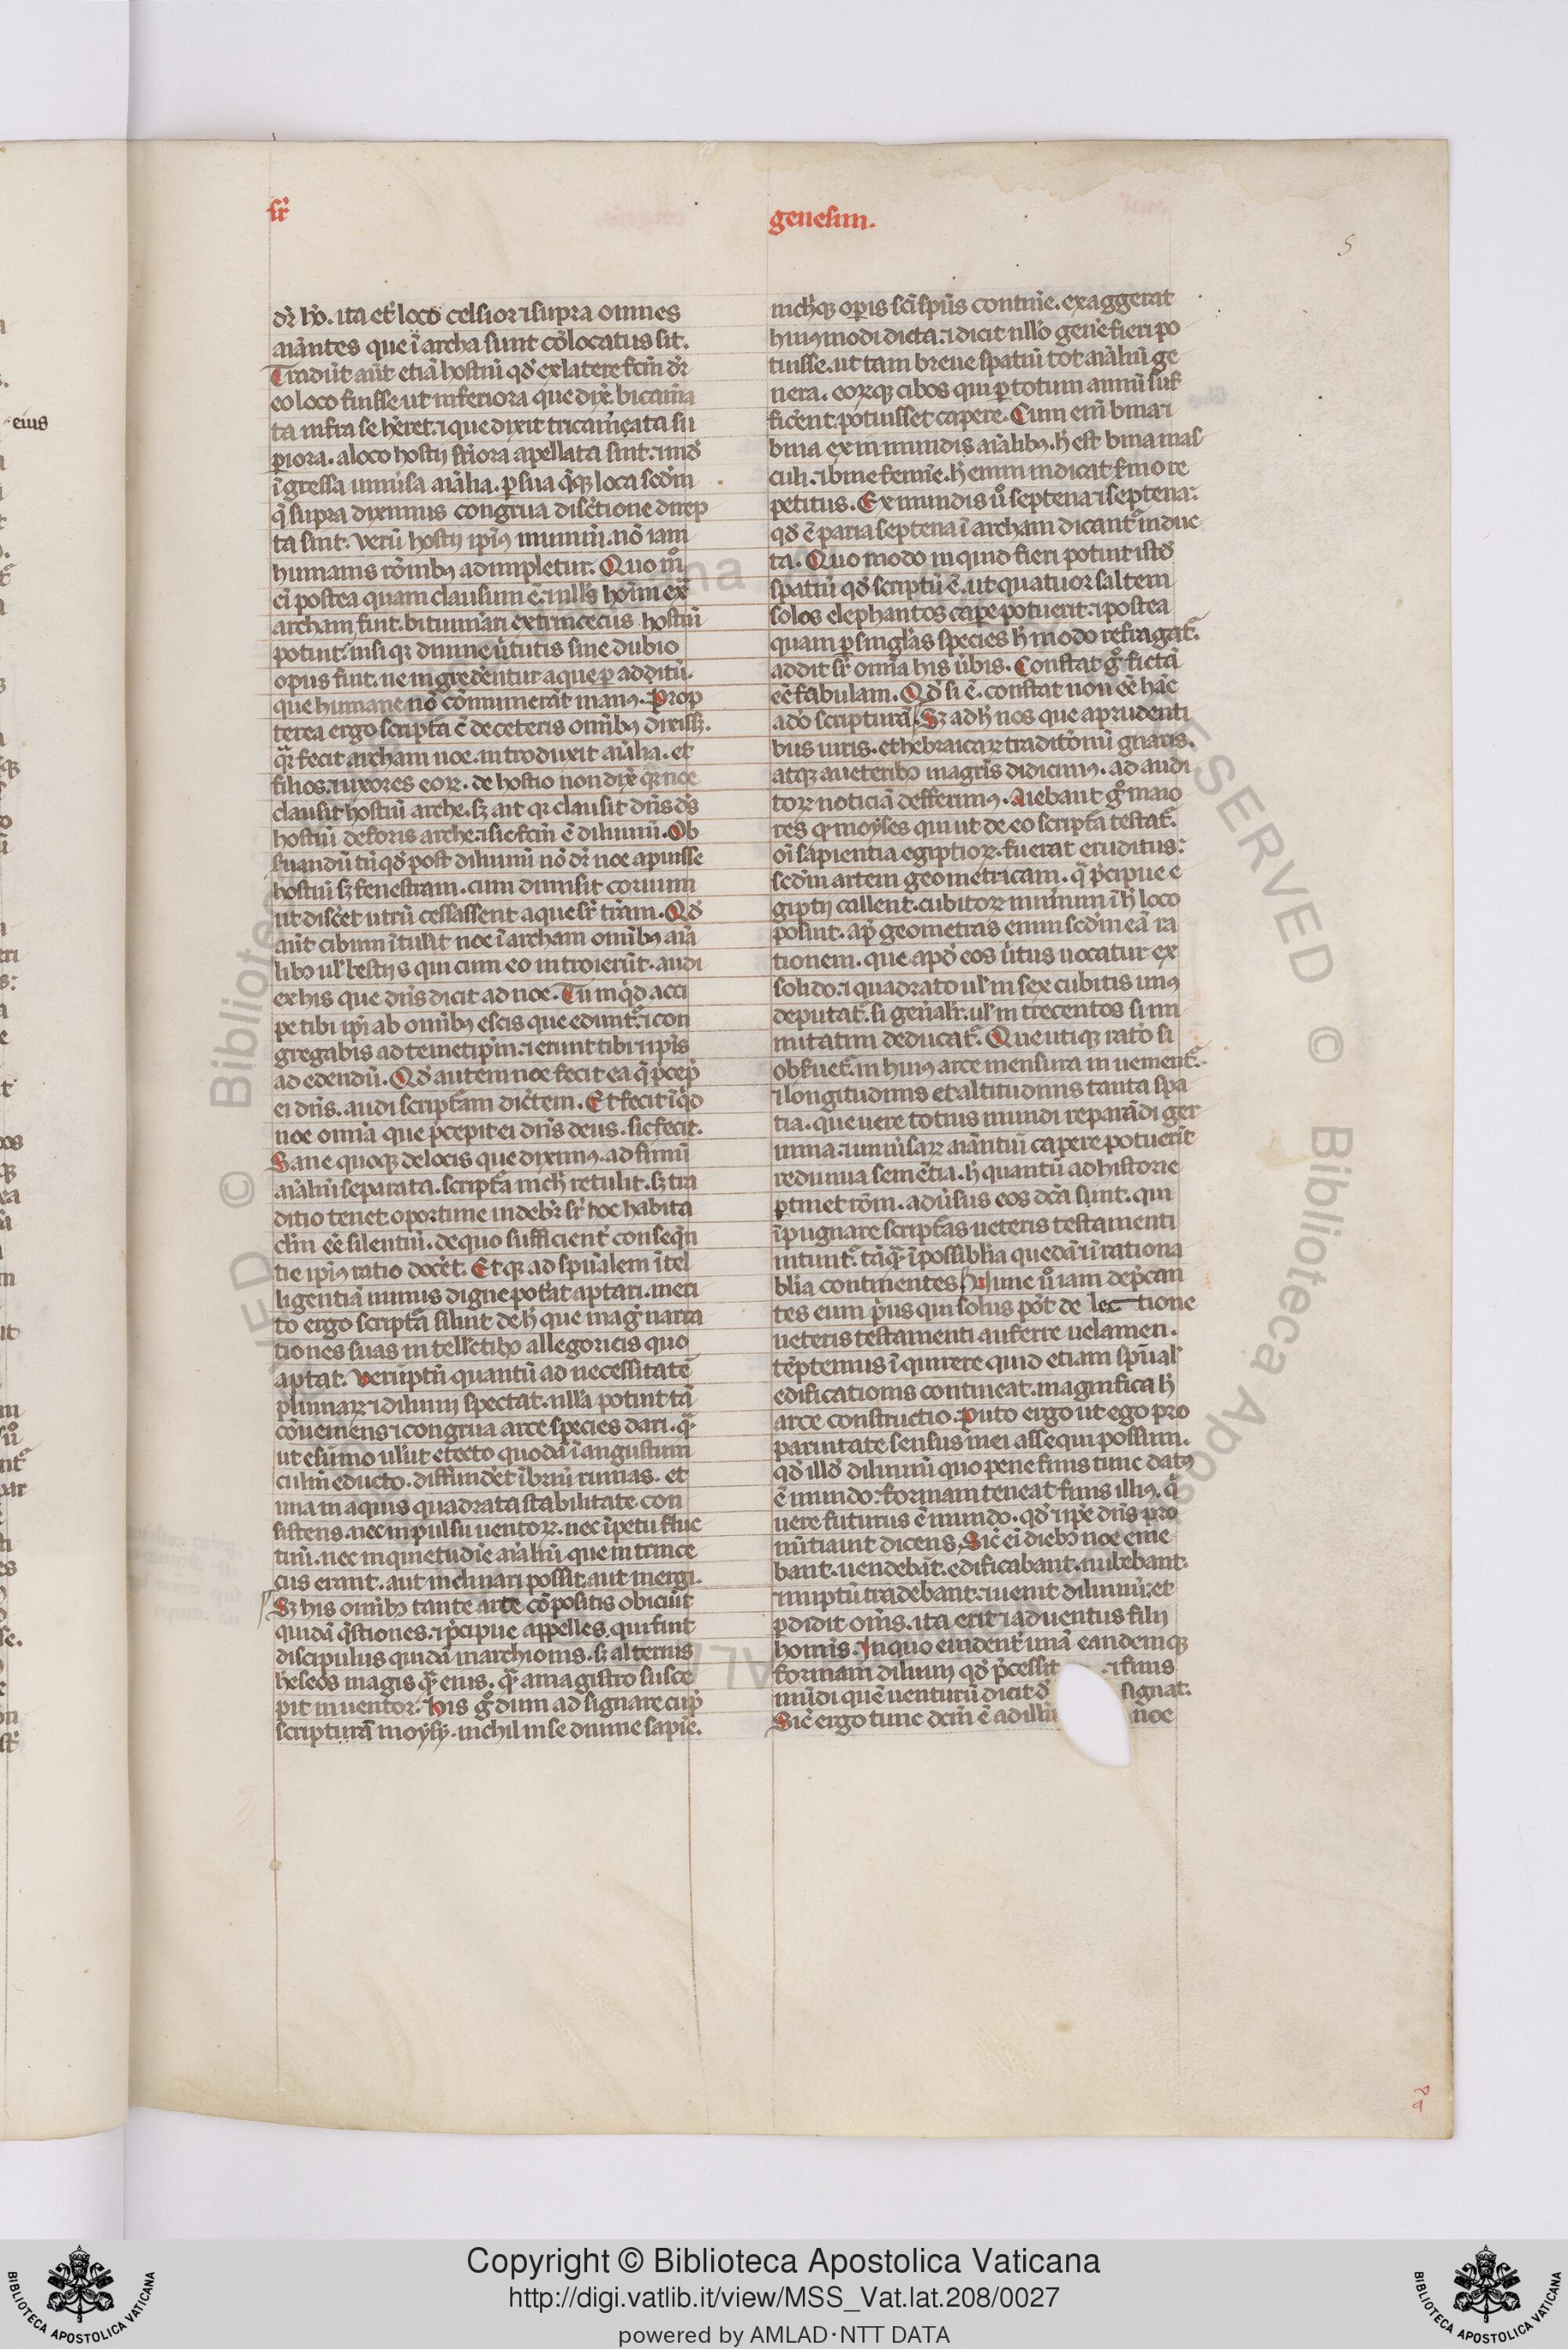 sr̄
genesim.
5
eius
dr̄ hō. ita et loco celsior ⁊ supra omnes
aīantes que ī archa sunt cōlocatus sit.
Tradūt aūt etiā hostiū qd̄ ex latere fcm̄ dr̄
eo loco fuisse ut inferiora que dix̄ bicam̄a
ta infra se hēret. ⁊ que dixit tricam̄ata su
ꝑiora. a loco hostij sr̄iora apellata sint. ⁊ ind̄
īgressa uniūsa aīalia. ꝑ sua q̄qꝫ loca scdm̄
q̄ supra diximus congrua disc̄tione dirēp
ta sint. Verū hostij ip̄iꝰ munim̄. nō iam
humanis rōnibꝫ adimpletur. Quo mͦ
ei postea quam clausum ē. ⁊ nullꝰ hoīm ext̄
archam fuit. bituminari extrincecus hostiū
potuit. nisi qꝛ diuine ūtutis sine dubio
opus fuit. ne ingrederentur aque ꝑ additū.
que humane nō cōmunierāt manꝰ. Prop
terea ergo scriptā ē de ceteris om̄ibꝫ dixissꝫ.
qꝛ fecit archam noe. introduxit aīalia. et
filios. ⁊ uxores eoꝝ. de hostio non dix̄ qꝛ noe
clausit hostiū arche. sꝫ ait qꝛ clausit dn̄s dꝰs
hostiū deforis arche. ⁊ sic fcm̄ ē diluuiū. Ob
suandū tn̄ qd̄ post diluuiū nō dr̄ noe apuisse
hostiū sꝫ fenestram. cum dimisit coruum
ut disc̄et utrū cessassent aque sr̄ trām. Qd̄
aūt cibum ītulit noe ī archam om̄ibꝫ aīa
libꝫ ul̄ bestijs qui cum eo introierūt. audi
ex his que dn̄s dicit ad noe. Tu inqͥd acci
pe tibi ipi ab om̄ibꝫ escis que eduntᷣ. ⁊ con
gregabis ad temetip̄m. ⁊ erunt tibi ⁊ ip̄is
ad edendū. Qd̄ autem noe fecit ea q̄ p̄cep̄
ei dn̄s. audi scripturam dic̄tem. Et fecit īqͥd
noe omnia que p̄cepit ei dn̄s deus. sic fecit.
Sane quoqꝫ de locis que diximꝰ. ad fimū
aīaliū separata. scriptā nichͥ retulit. sꝫ tra
ditio tenet. oportune uidebr̄ sr̄ hoc habita
clm̄ eē silentiū. de quo sufficient̄ conseq̄n
tie ip̄iꝰ ratio docet. Et qꝛ ad spūalem ītel
ligentiā minus digne pot̄at aptari. meri
to ergo scriptā siluit de hͥ que magͥ narra
tiones suas intellectibꝫ allegoricis quo
aptat. Verūptn̄ quantū ad necessitatē
pluuiaꝝ ⁊ diluuij spectat. nulla potuit tā
cōueniens ⁊ congrua arce species dari. qᷓ
ut e sūmo uelut e tecto quodā ī angustum
culm̄ educto. diffunderet ībriū ruinas. et
ima in aquis quadrata stabilitate con
sistens. nec inpulsu uentoꝝ. nec īpetu fluc
tuū. nec inquietudīe aīaliū que intrince
cus erant. aut inclinari possit. aut mergi.
Sꝫ his om̄ibꝫ tante arte cōpositis obiciūt
quidā q̄stiones. ⁊ p̄cipue appelles. qui fuit
discipulus quidā marchionis. sꝫ alterius
hereseos magis qᷓ eius. qᷓ a magistro susce
pit inuentor. His gͦ dum adsignare cup̄
scripturā moysy. nichil in se diuine sapie.
nichͥqꝫ opis sci spūs contine. exaggerat
huiꝰmodi dicta. ⁊ dicit nullo genere fieri po
tuisse. ut tam breue spatiū tot aīaliū ge
nera. eorūqꝫ cibos qui ꝑ totum annū suf
ficerent. potuisset capere. Cum enī bina ⁊
bina ex inmundis aīalibꝫ. hͥ est bina mas
culi. ⁊ bine femine. hͥ enim indicat sermo re
petitus. Ex mundis uͦ septena ⁊ septena:
qd̄ ē paria septena ī archam dicantᷣ induc
ta. Quo modo inquid fieri potuit istd̄
spatiū qd̄ scriptū ē. ut quatuor saltem
solos elephantos cape potuerit. ⁊ postea
quam ꝑ singlas species hͥ modo refragatᷣ.
addit sr̄ omīa his ūbis. Constat gͦ fictā
eē fabulam. Qd̄ si ē. constat non eē hāc
a dō scripturā. Sꝫ ad hͥ nos que a prudenti
bus uiris. et hebraicaꝝ traditionū gnaris.
atqꝫ a ueteribꝫ magrīs didicimꝰ. ad audi
toꝝ noticiā defferimꝰ. Aiebant gͦ maio
res qꝫ moyses qui ut de eo scriptā testatᷣ.
oī sapientia egiptioꝝ fuerat eruditus:
scdm̄ artem geometricam. qᷓ p̄cipue e
giptij callent. cubitoꝝ num̄um ī hͥ loco
posuit. ap̄ geometras enim scdm̄ eā ra
tionem. que apd̄ eos ūtus uocatur ex
solido. ⁊ quadrato ul̄ in sex cubitis unꝰ
deputatᷣ. si gen̄alr̄. ul̄ in trecentos si mi
nutatim deducatᷣ. Que utiqꝫ ratō si
obseruetᷣ in huiꝰ arce mensura inuenientᷣ.
⁊ longitudinis et altitudinis tanta spa
tia. que uere totius mundi reparādi ger
mina. ⁊ uniūsaꝝ aīantiū capere potuerīt
rediuiua semētia. hͥ quantū ad historie
ꝑtinet rōm. adūsus eos dcā sunt. qui
īpugnare scripturas ueteris testamenti
nituntᷣ. tāqᷓ īpossibilia quedā ⁊ irrationa
bilia continentes. Nunc uͦ iam dep̄can
tes eum p̄us qui solus pōt de lectione
ueteris testamenti auferre uelamen.
tēptemus īquirere quid etiam spūal̄
edificationis contineat. magnifica hͥ
arce constructio. Puto ergo ut ego pro
paruitate sensus mei assequi possum.
qd̄ illd̄ diluuiū quo pene finis tunc datꝰ
ē mundo. formam teneat finis illiꝰ. qͥ
uere futurus ē mundo. qd̄ ⁊ ip̄e dn̄s pro
nūtiauit dicens. Sic̄ ei diebꝫ noe eme
bant. uendebāt. edificabant. nubebant.
⁊ nuptū tradebant. ⁊ uenit diluuiū. et
ꝑdidit om̄s. ita erit ⁊ aduentus filij
hominis. In quo euident̄ unā eandemqꝫ
formam diluuij qd̄ p̄cessit ⁊ finis
mūdi quē uenturū dicit d signat.
Sic̄ ergo tunc dcm̄ ē ad illū noe
Copyright © Biblioteca Apostolica Vaticana
http://digi.vatlib.it/view/MSS_Vat.lat.208/0027
powered by AMLAD·NTT DATA
BIBLIOTECA APOSTOLICA VATICANA
BIBLIOTECA APOSTOLICA VATICANA